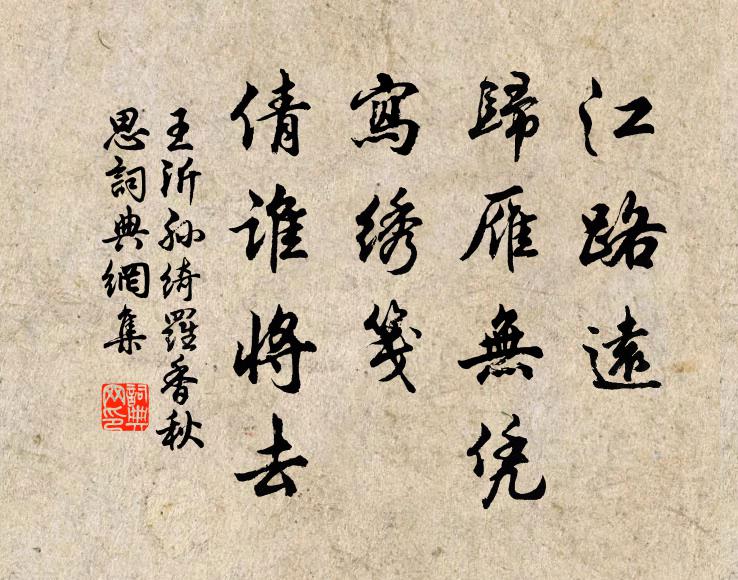 江路遠
歸雁無凭
寫绣箋
倩誰將去
王沂孙綺羅香秋
思詞典網集
詞典
网印